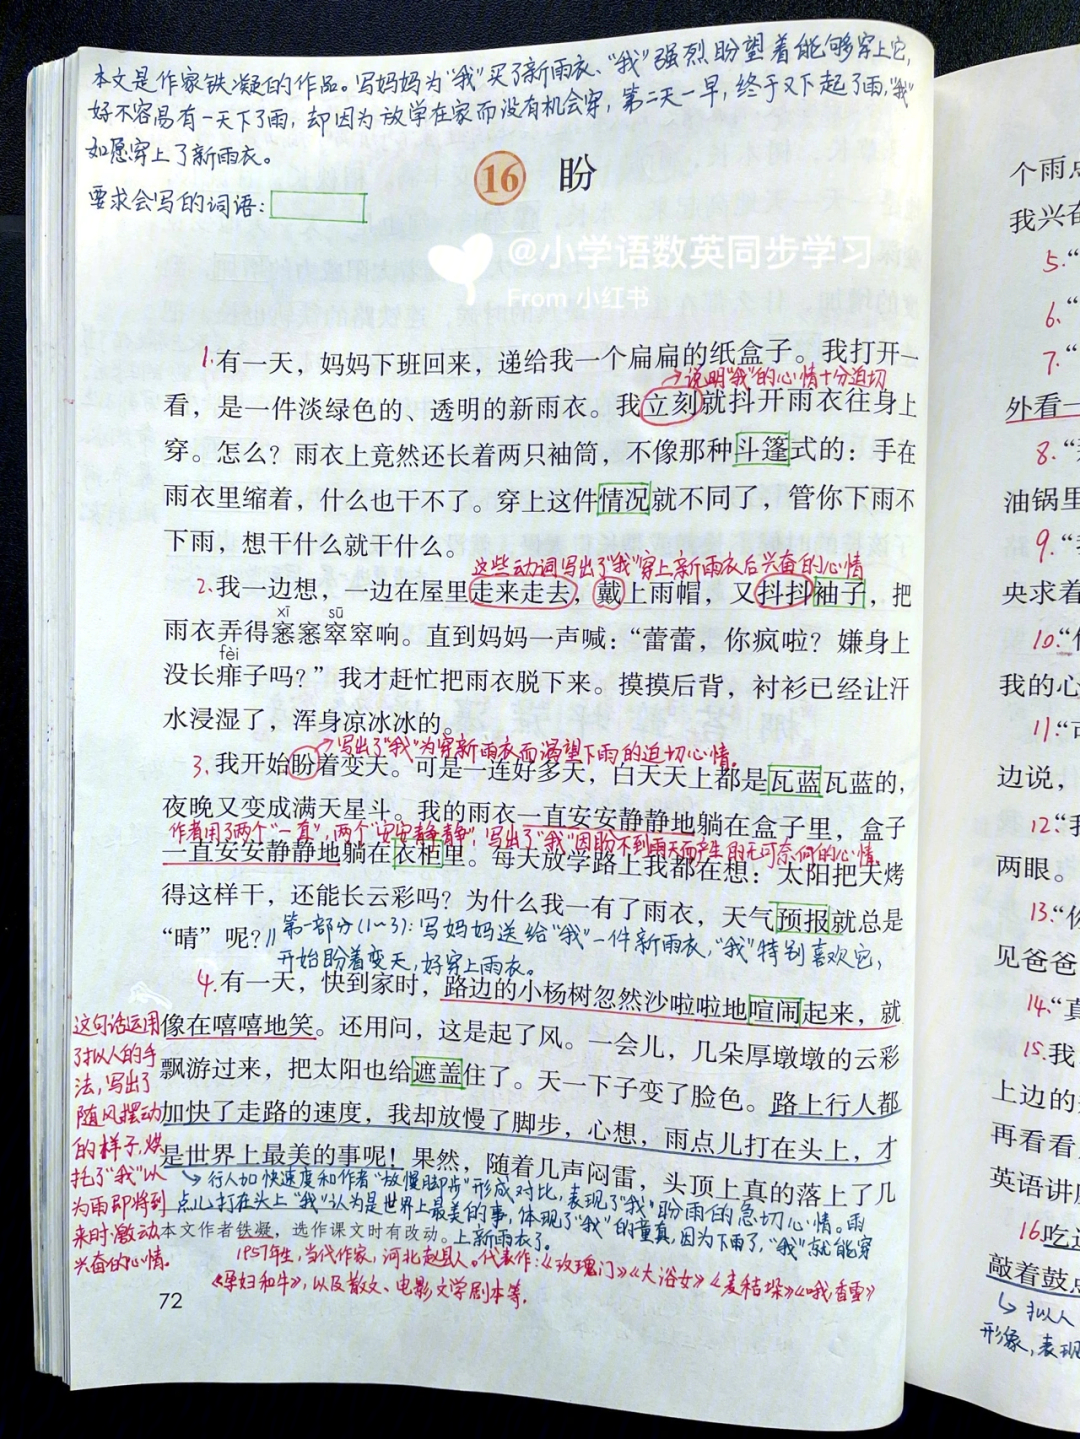 本文是作家铁凝的作品。写妈妈为"我"买了新雨衣、"我"强烈盼望着能够穿上它,
好不容易有一天下了雨,却因为放学在家而没有机会穿,第二天一早,终于又下起了雨,"我"
如愿穿上了新雨衣。
要求会写的词语:
16 盼
@小学语数英同步学习
From 小红书
1.有一天,妈妈下班回来,递给我一个扁扁的纸盒子。我打开一
→说明"我"的心情十分迫切
看,是一件淡绿色的、透明的新雨衣。我立刻就抖开雨衣往身上
穿。怎么?雨衣上竟然还长着两只袖筒,不像那种斗篷式的:手在
雨衣里缩着,什么也干不了。穿上这件情况就不同了,管你下雨不
下雨,想干什么就干什么。
这些动词写出了"我"穿上新雨衣后兴奋的心情
2.我一边想,一边在屋里走来走去,戴上雨帽,又抖抖袖子,把
xī sū
雨衣弄得窸窸窣窣响。直到妈妈一声喊:"蕾蕾,你疯啦?嫌身上
fèi
没长痱子吗?"我才赶忙把雨衣脱下来。摸摸后背,衬衫已经让汗
水浸湿了,浑身凉冰冰的。
→写出了"我"为穿新雨衣而渴望下雨的迫切心情。
3.我开始盼着变天。可是一连好多天,白天天上都是瓦蓝瓦蓝的,
夜晚又变成满天星斗。我的雨衣一直安安静静地躺在盒子里,盒子
作者用了两个"一直",两个"安安静静",写出了"我"因盼不到雨天而产生的无可奈何的心情。
一直安安静静地躺在衣柜里。每天放学路上我都在想:太阳把天烤
得这样干,还能长云彩吗?为什么我一有了雨衣,天气预报就总是
"晴"呢?∥第一部分(1~3):写妈妈送给"我"一件新雨衣,"我"特别喜欢它,
开始盼着变天,好穿上雨衣。
4.有一天,快到家时,路边的小杨树忽然沙啦啦地喧闹起来,就
像在嘻嘻地笑。还用问,这是起了风。一会儿,几朵厚墩墩的云彩
飘游过来,把太阳也给遮盖住了。天一下子变了脸色。路上行人都
加快了走路的速度,我却放慢了脚步,心想,雨点儿打在头上,才
是世界上最美的事呢!果然,随着几声闷雷,头顶上真的落上了几
这句话运用
了拟人的手
法,写出了
随风摆动
的样子,烘
托了"我"以
为雨即将到
来时激动
兴奋的心情。
→行人加快速度和作者"放慢脚步"形成对比,表现了"我"盼雨的急切心情。雨
点儿打在头上"我"认为是世界上最美的事,体现了"我"的童真,因为下雨了,"我"就能穿
上新雨衣了。
本文作者铁凝,选作课文时有改动。
1957年生,当代作家,河北赵县人。代表作:《玫瑰门》《大浴女》《麦秸垛》《哦,香雪》
《孕妇和牛》,以及散文、电影文学剧本等。
72
个雨点
我兴奋
5."
6."
7."
外看一
8."
油锅里
9."
央求着
10."
我的心
11."
边说,
12."我
两眼。
13."你
见爸爸
14."真
15.我
上边的
再看看
英语讲
16.吃
敲着鼓点
→拟人
形象,表现